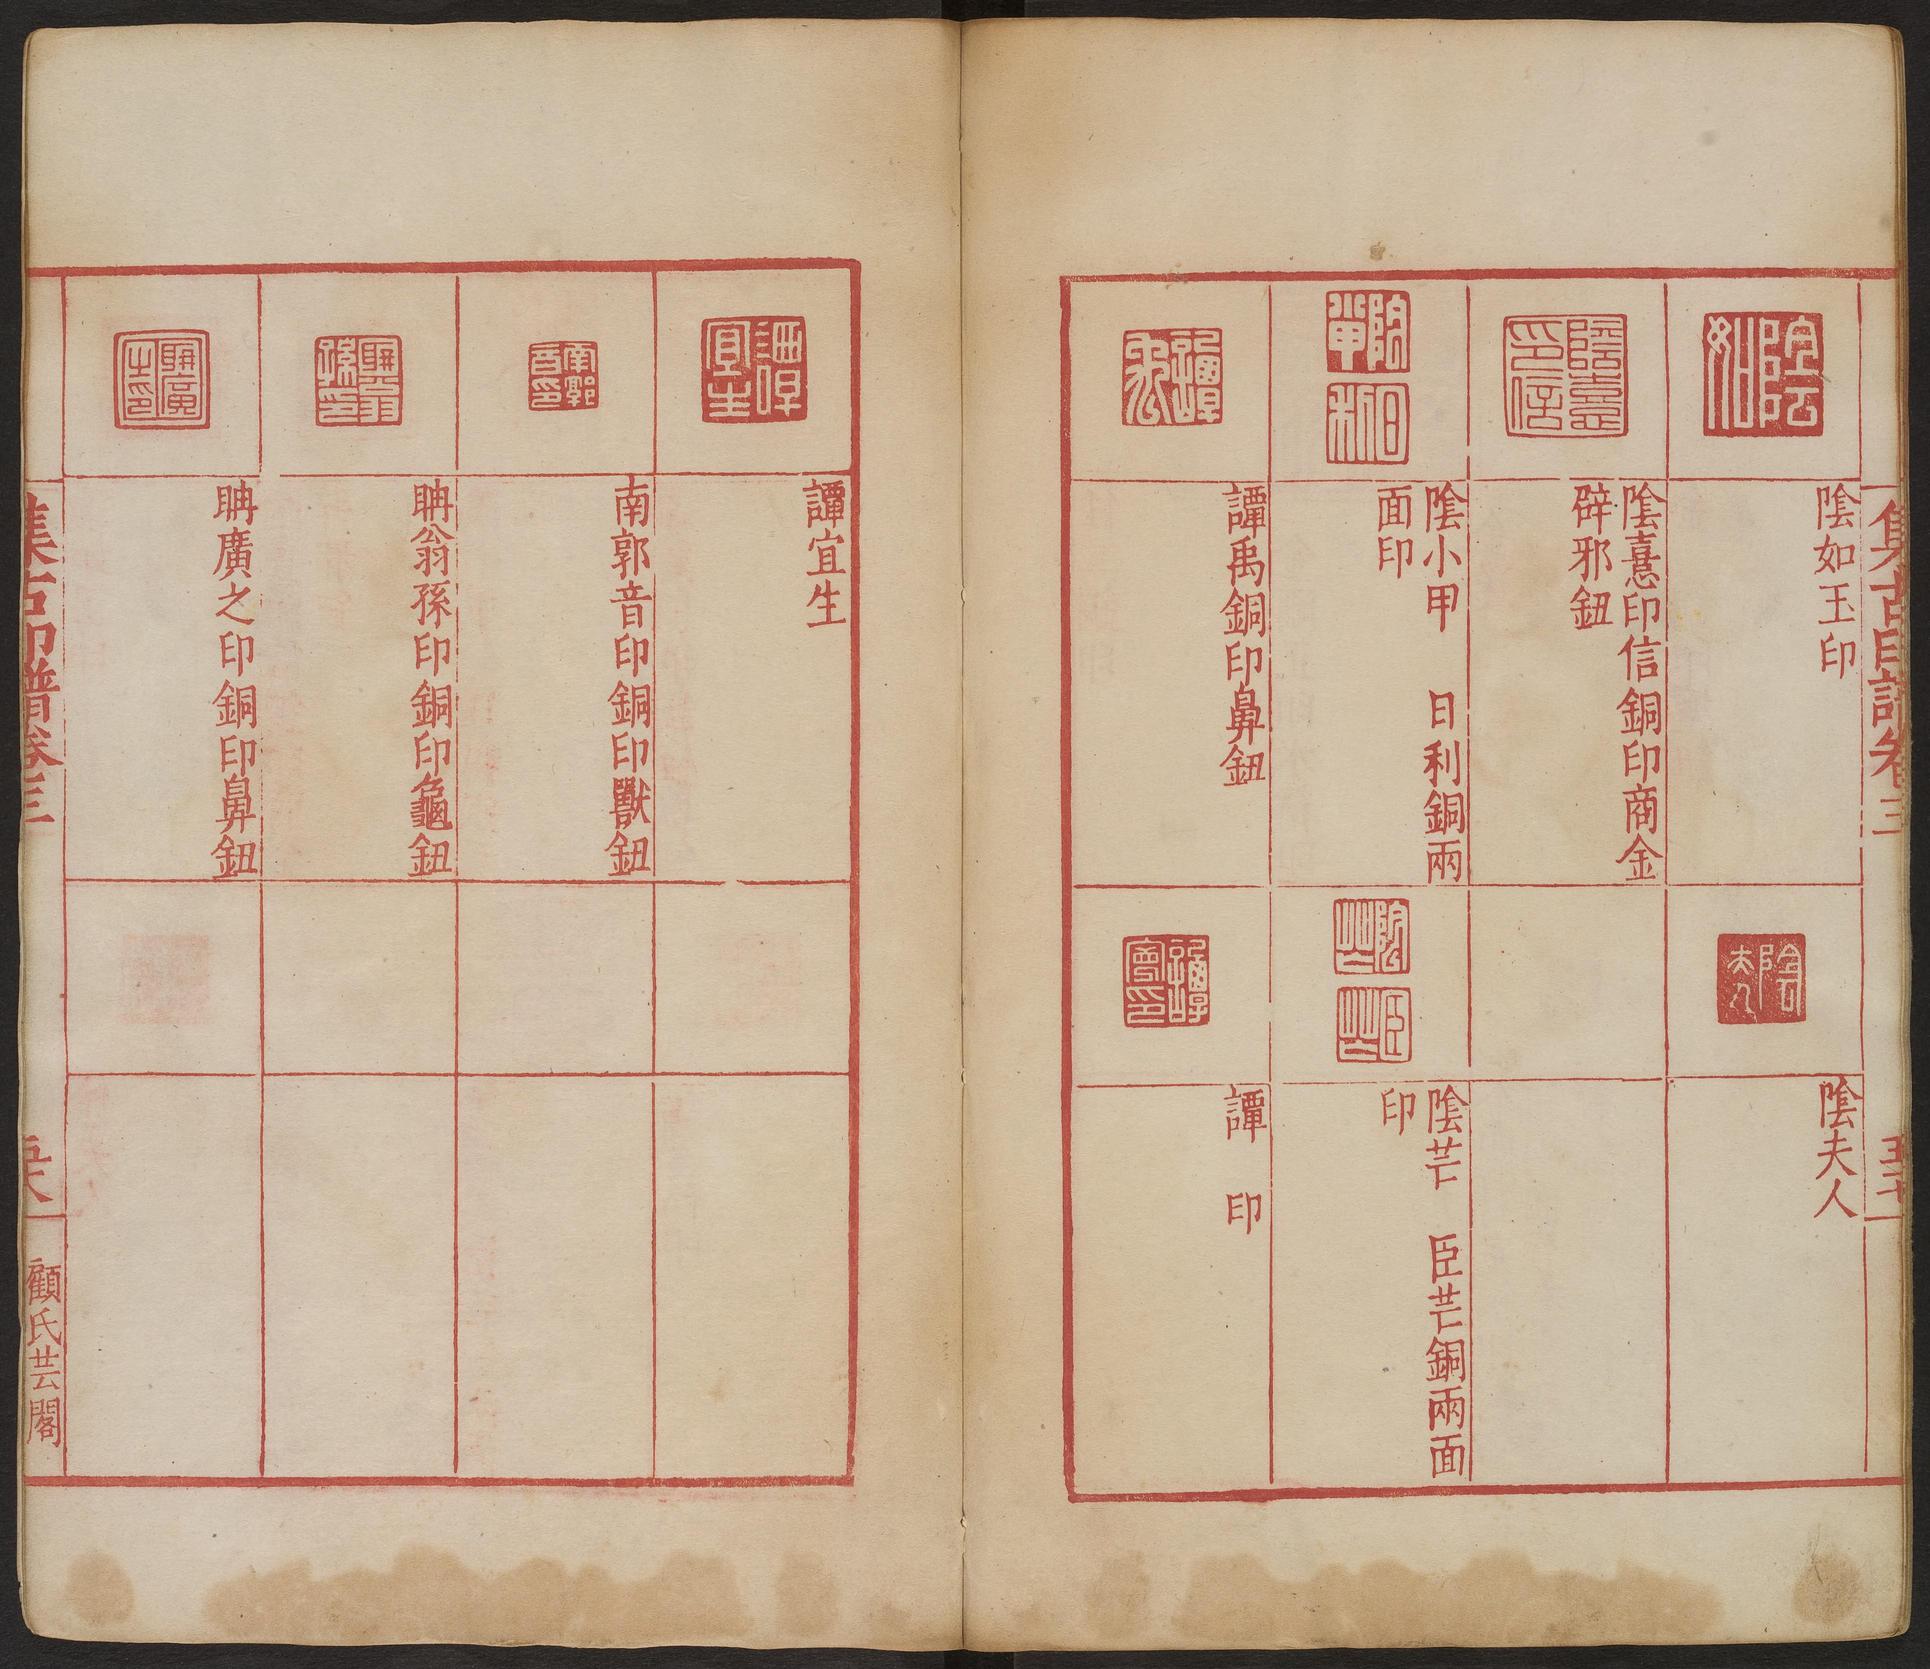 集古印譜卷三
五十
陰如玉印
陰憙印信銅印商金
辟邪鈕
陰小甲 日利銅兩
面印
譚禹銅印鼻鈕
陰夫人
陰芒 臣芒銅兩面
印
譚 印
譚宜生
南郭音印銅印獸鈕
聃翁孫印銅印龜鈕
聃廣之印銅印鼻鈕
集古印譜卷三
顧氏芸閣